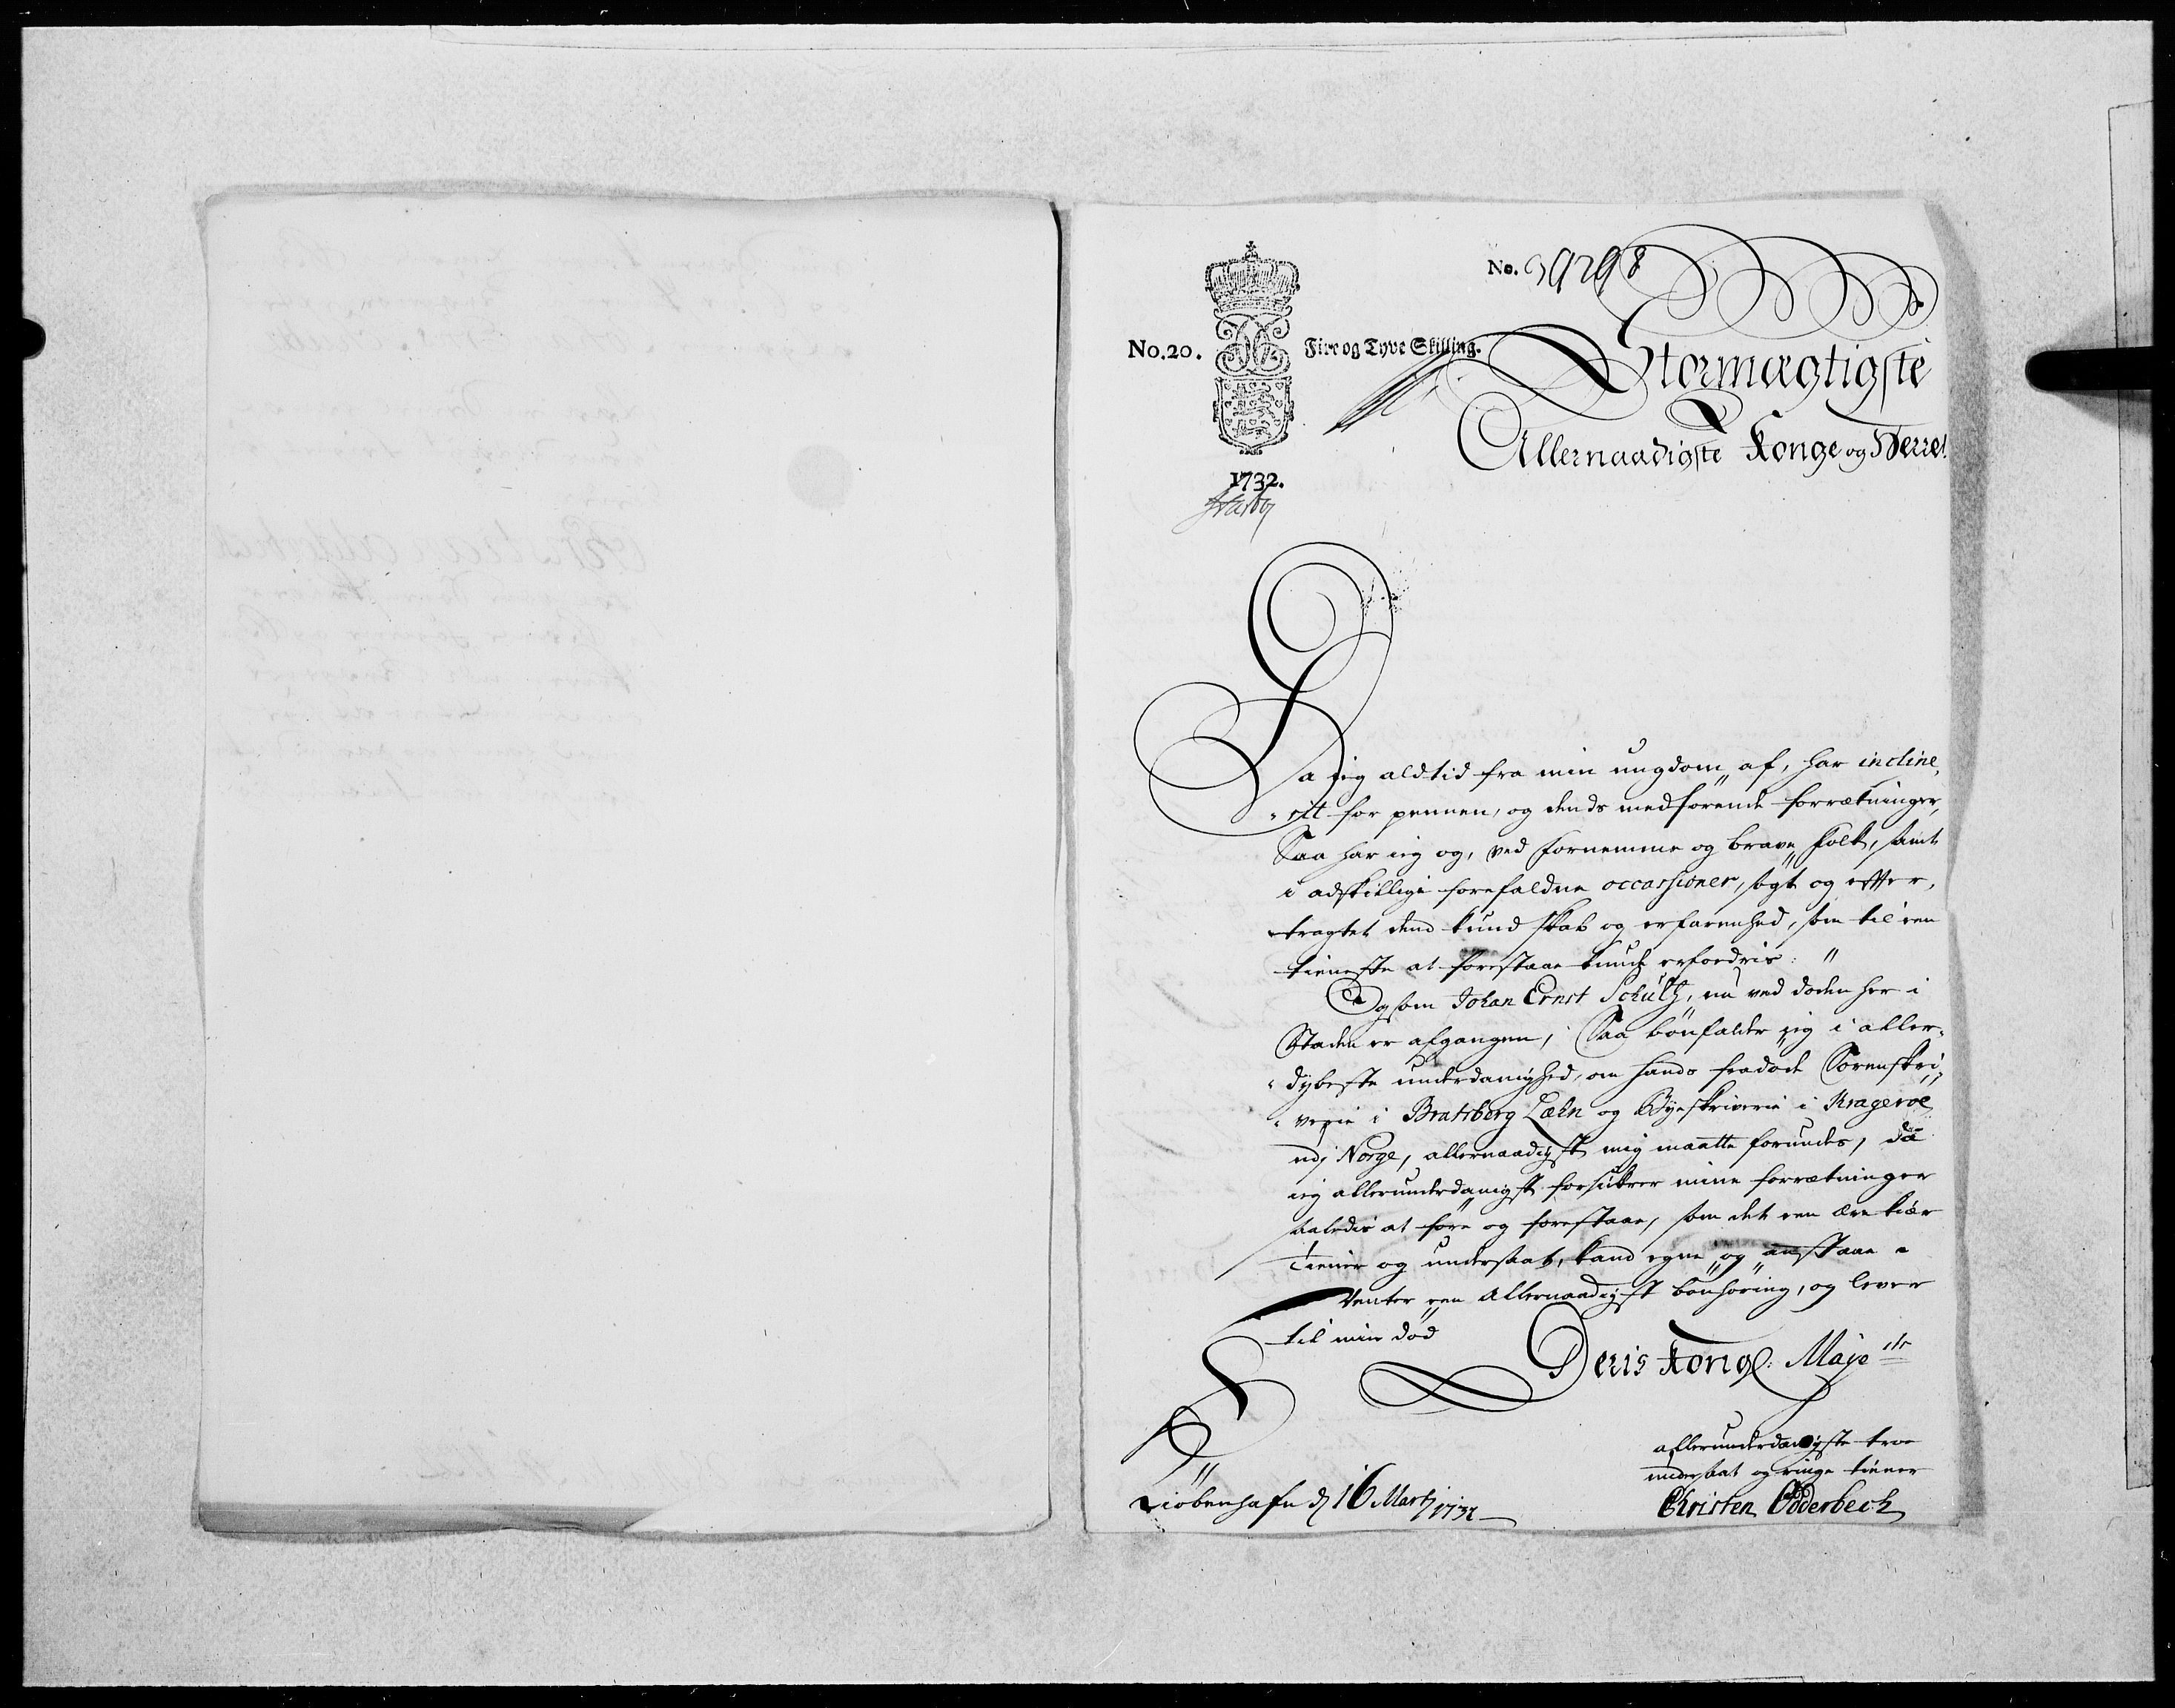 No. 39298
No. 20. Fire og Tyve Skilling.
1732.
Stormægtigste
Allernaadigste Konge og Herre!
Da jeg aldtid fra min ungdom af, har incline,
„rit for pennen, og dends medførende forrætninger,
Saa har jeg og, ved fornemme og brave folk, samt
i adskillige forefaldne occassioner, søgt og efter,
tragtet dend kundskab og erfarenhed, som til een
tieneste at forestaae kunde erfordris:
Og som Johan Ernst Schultz, nu ved døden her i
Staden er afgangen, Saa bønfalder jeg i aller„
„dybeste underdanighed, om hands fradøde Sorenskri„
„verie i Bratsberg Læhn og Byeskriverie i Krageröe
udj Norge, allernaadigst mig maatte forundes, da
jeg allerunderdanigst forsikrer mine forrætninger
saaledis at føre og forestaae, som det een ære kiær
Tiener og undersaat, kand egne og anstaae
Venter een Allernaadigst bønhøring, og lever
til min død
Deris Kongl: Maje.sts
allerunderdanigste troe
undersaat og ringe tiener
Christen Odderbech
Kiøbenhafn d 16 Martj 1732